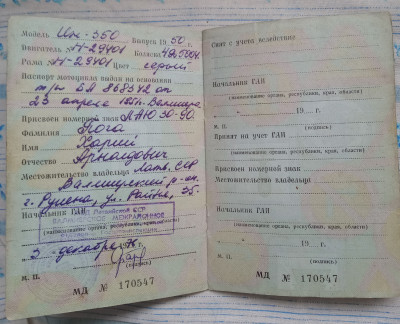 Модель Иж-350 Выпуска 1950 г.
Двигатель № Н-29401 Коляска №
Рама № Н-29401 Цвет серый
Паспорт мотоцикла выдан на основании
БА 868342 от
23 апреля
Присвоен номерной знак ЛАЮ 30-90
Фамилия Лога
Имя Харий
Отчество Арнольдович
Местожительство владельца Латв. ССР
Валмиерский р-он.
г. Руиена, ул. Райня, 35.
Начальник ГАИ
(наименование органа, республики, края, области)
"3" декабря 1976 г.
М. П. (подпись)
МД № 170547
Снят с учета вследствие
Начальник ГАИ
(наименование органа, республики, края, области)
19 г.
М. П. (подпись)
Принят на учет ГАИ
(наименование органа, республики, края, области)
Присвоен номерной знак
Местожительство владельца
Начальник ГАИ
(наименование органа, республики, края, области)
19 г.
М. П. (подпись)
МД № 170547